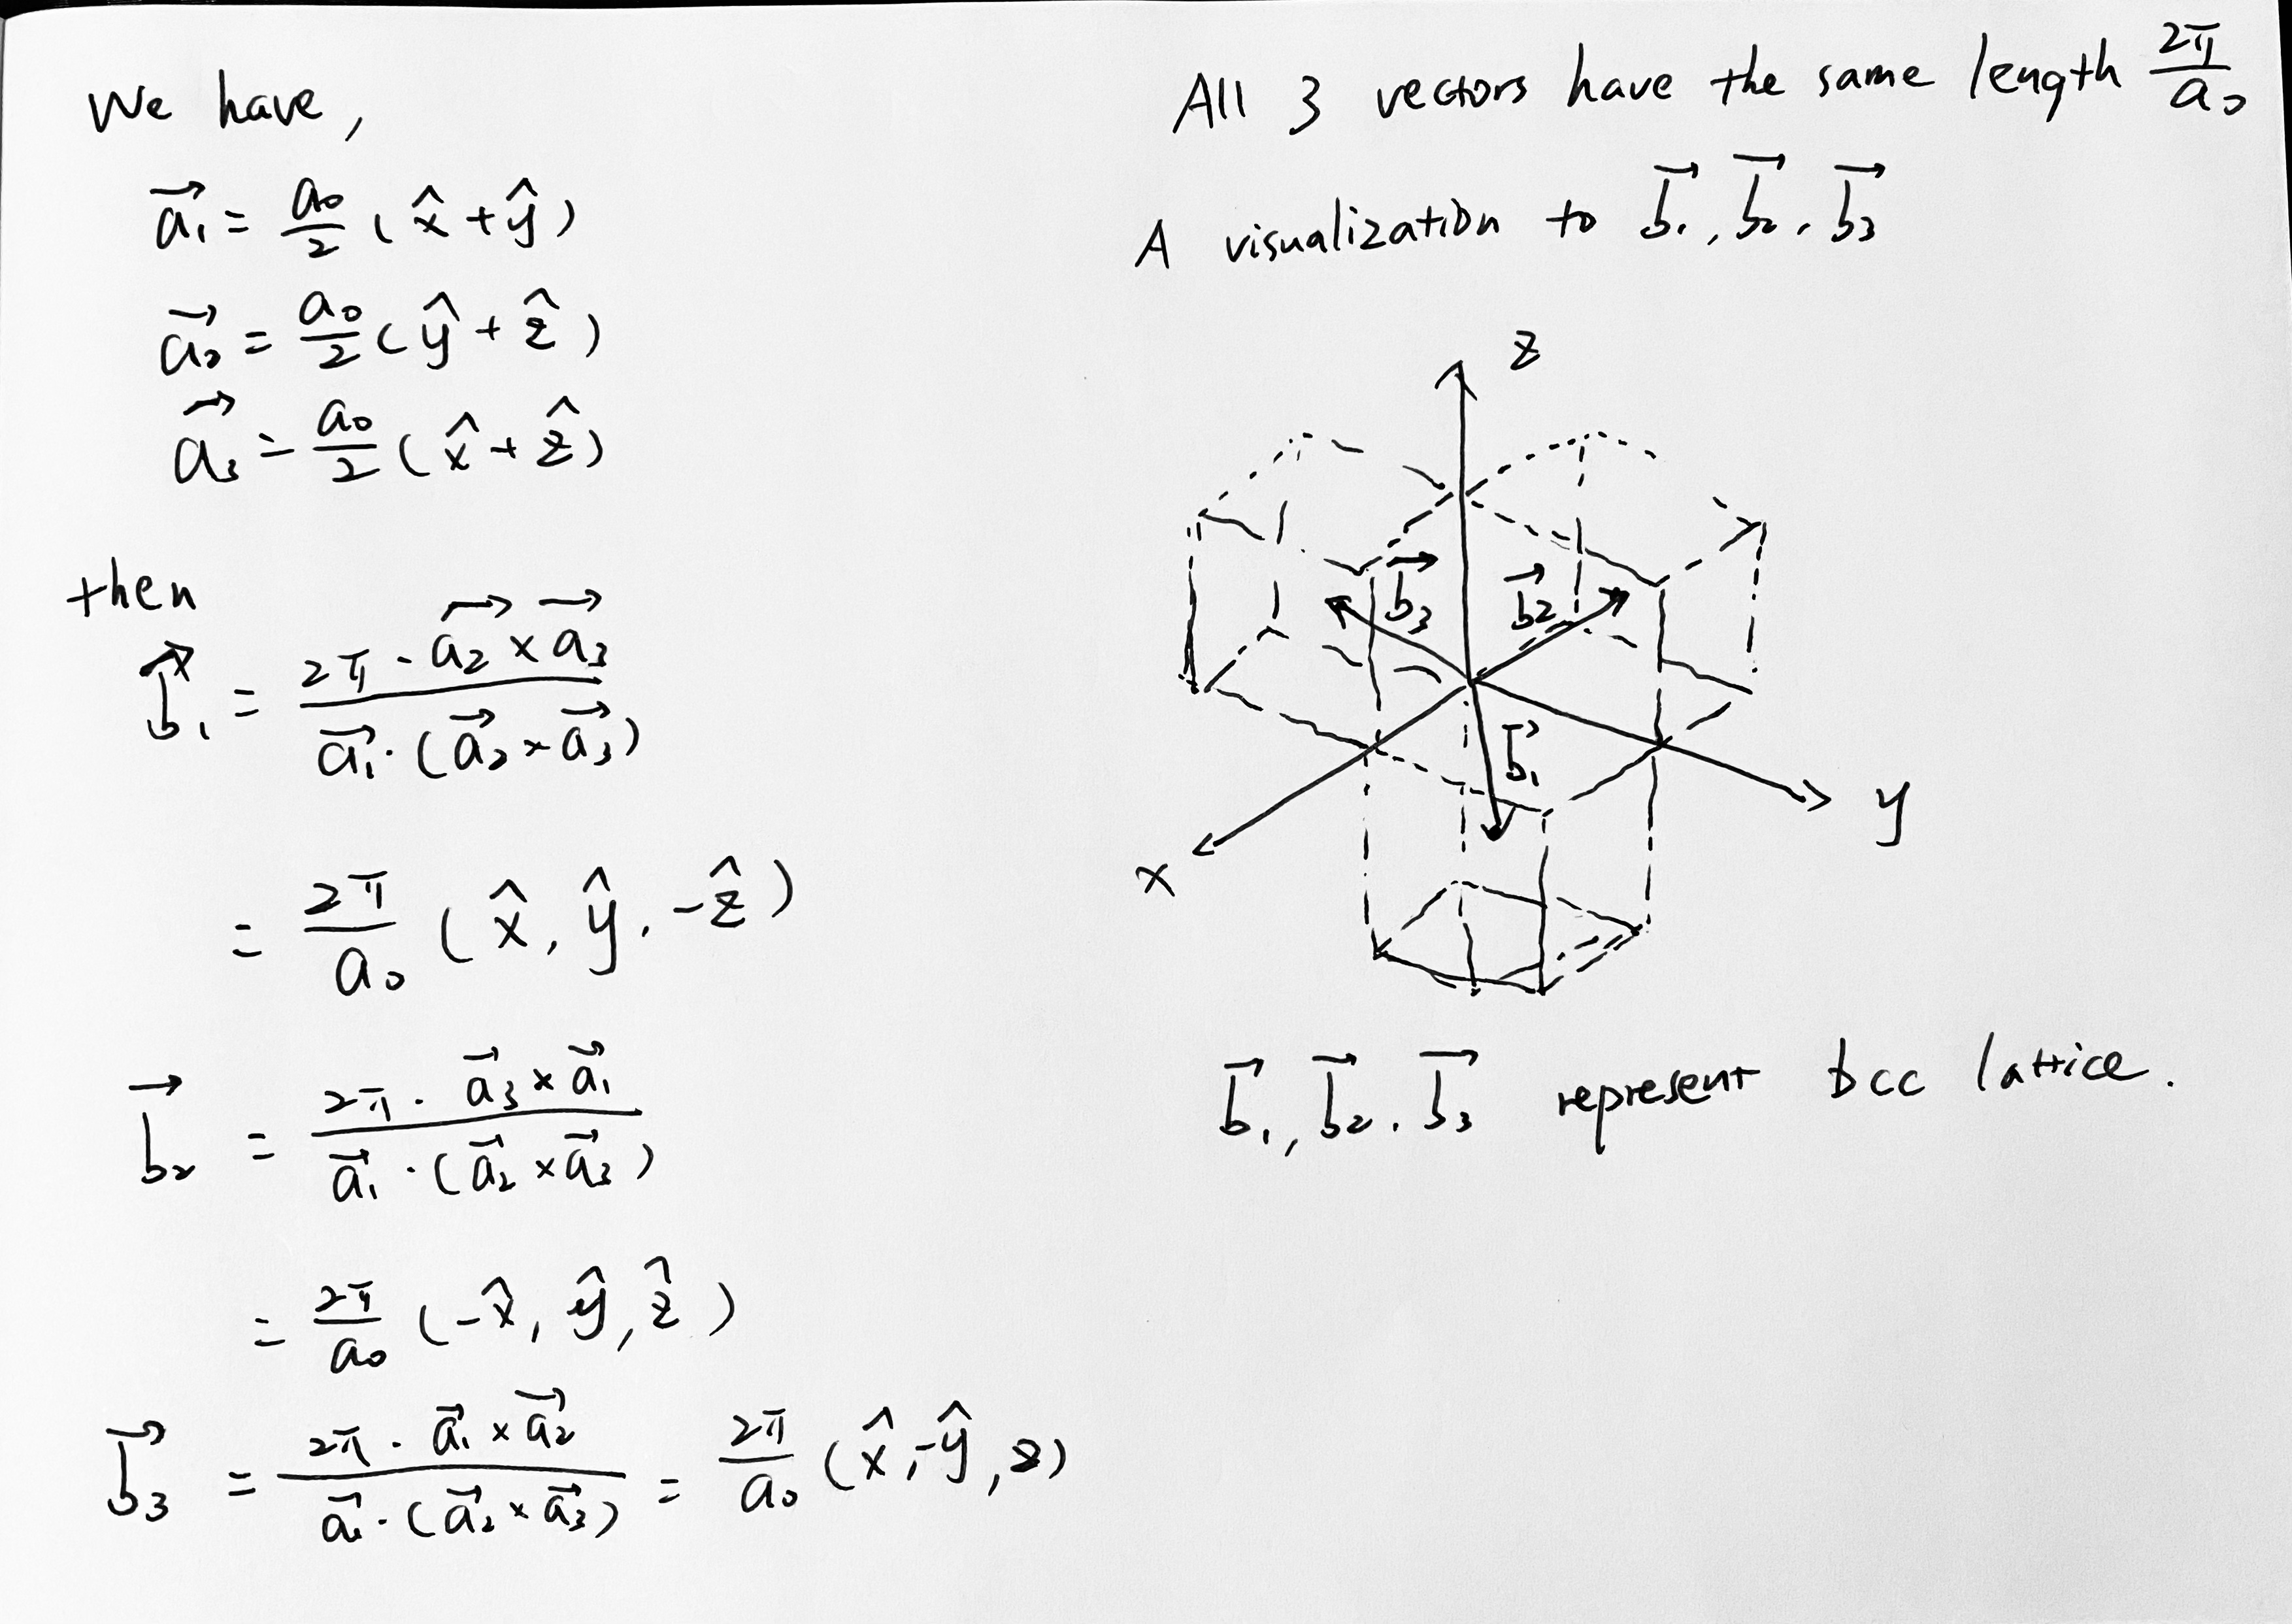 We have,
a⃗₁ = a₀/2 (x̂ + ŷ)
a⃗₂ = a₀/2 (ŷ + ẑ)
a⃗₃ = a₀/2 (x̂ + ẑ)
then
b⃗₁ = 2π · a⃗₂ × a⃗₃ / a⃗₁ · (a⃗₂ × a⃗₃)
= 2π/a₀ (x̂, ŷ, -ẑ)
b⃗₂ = 2π · a⃗₃ × a⃗₁ / a⃗₁ · (a⃗₂ × a⃗₃)
= 2π/a₀ (-x̂, ŷ, ẑ)
b⃗₃ = 2π · a⃗₁ × a⃗₂ / a⃗₁ · (a⃗₂ × a⃗₃) = 2π/a₀ (x̂, -ŷ, z)
All 3 vectors have the same length 2π/a₀
A visualization to b⃗₁, b⃗₂, b⃗₃
z
b⃗₃
b⃗₂
b⃗₁
y
x
b⃗₁, b⃗₂, b⃗₃ represent bcc lattice.